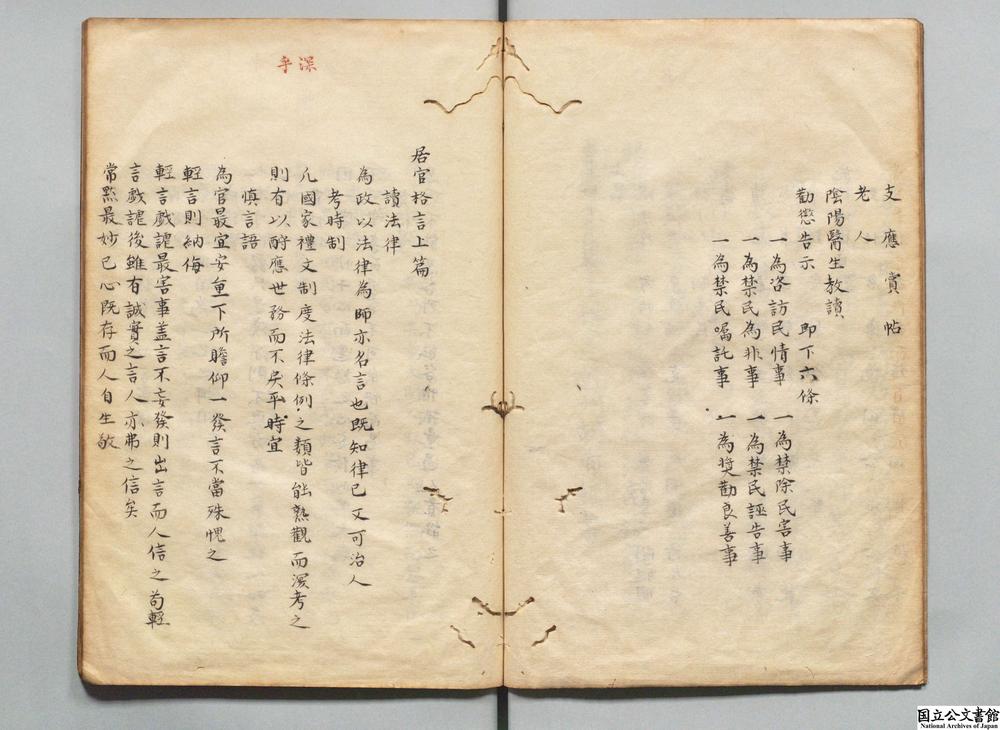 支應賞帖
老人
陰陽醫生教讀
勸懲告示 即下六條
一為咨訪民情事 一為禁除民害事
一為禁民為非事 一為禁民誣告事
一為禁民囑託事 一為奬勸良善事
居官格言上篇
讀法律
為政以法律為師亦名言也既知律已又可治人
考時制
凡國家禮文制度法律條例之類皆能熟觀而深考之
則有以酧應世務而不戾乎時宜
一慎言語
為官最宜安重下所瞻仰一發言不當殊愧之
輕言則納侮
輕言戲謔最害事盖言不妄發則出言而人信之苟輕
言戲謔後雖有誠實之言人亦弗之信矣
常黙最妙已心既存而人自生敬
深
乎
国立公文書館
National Archives of Japan